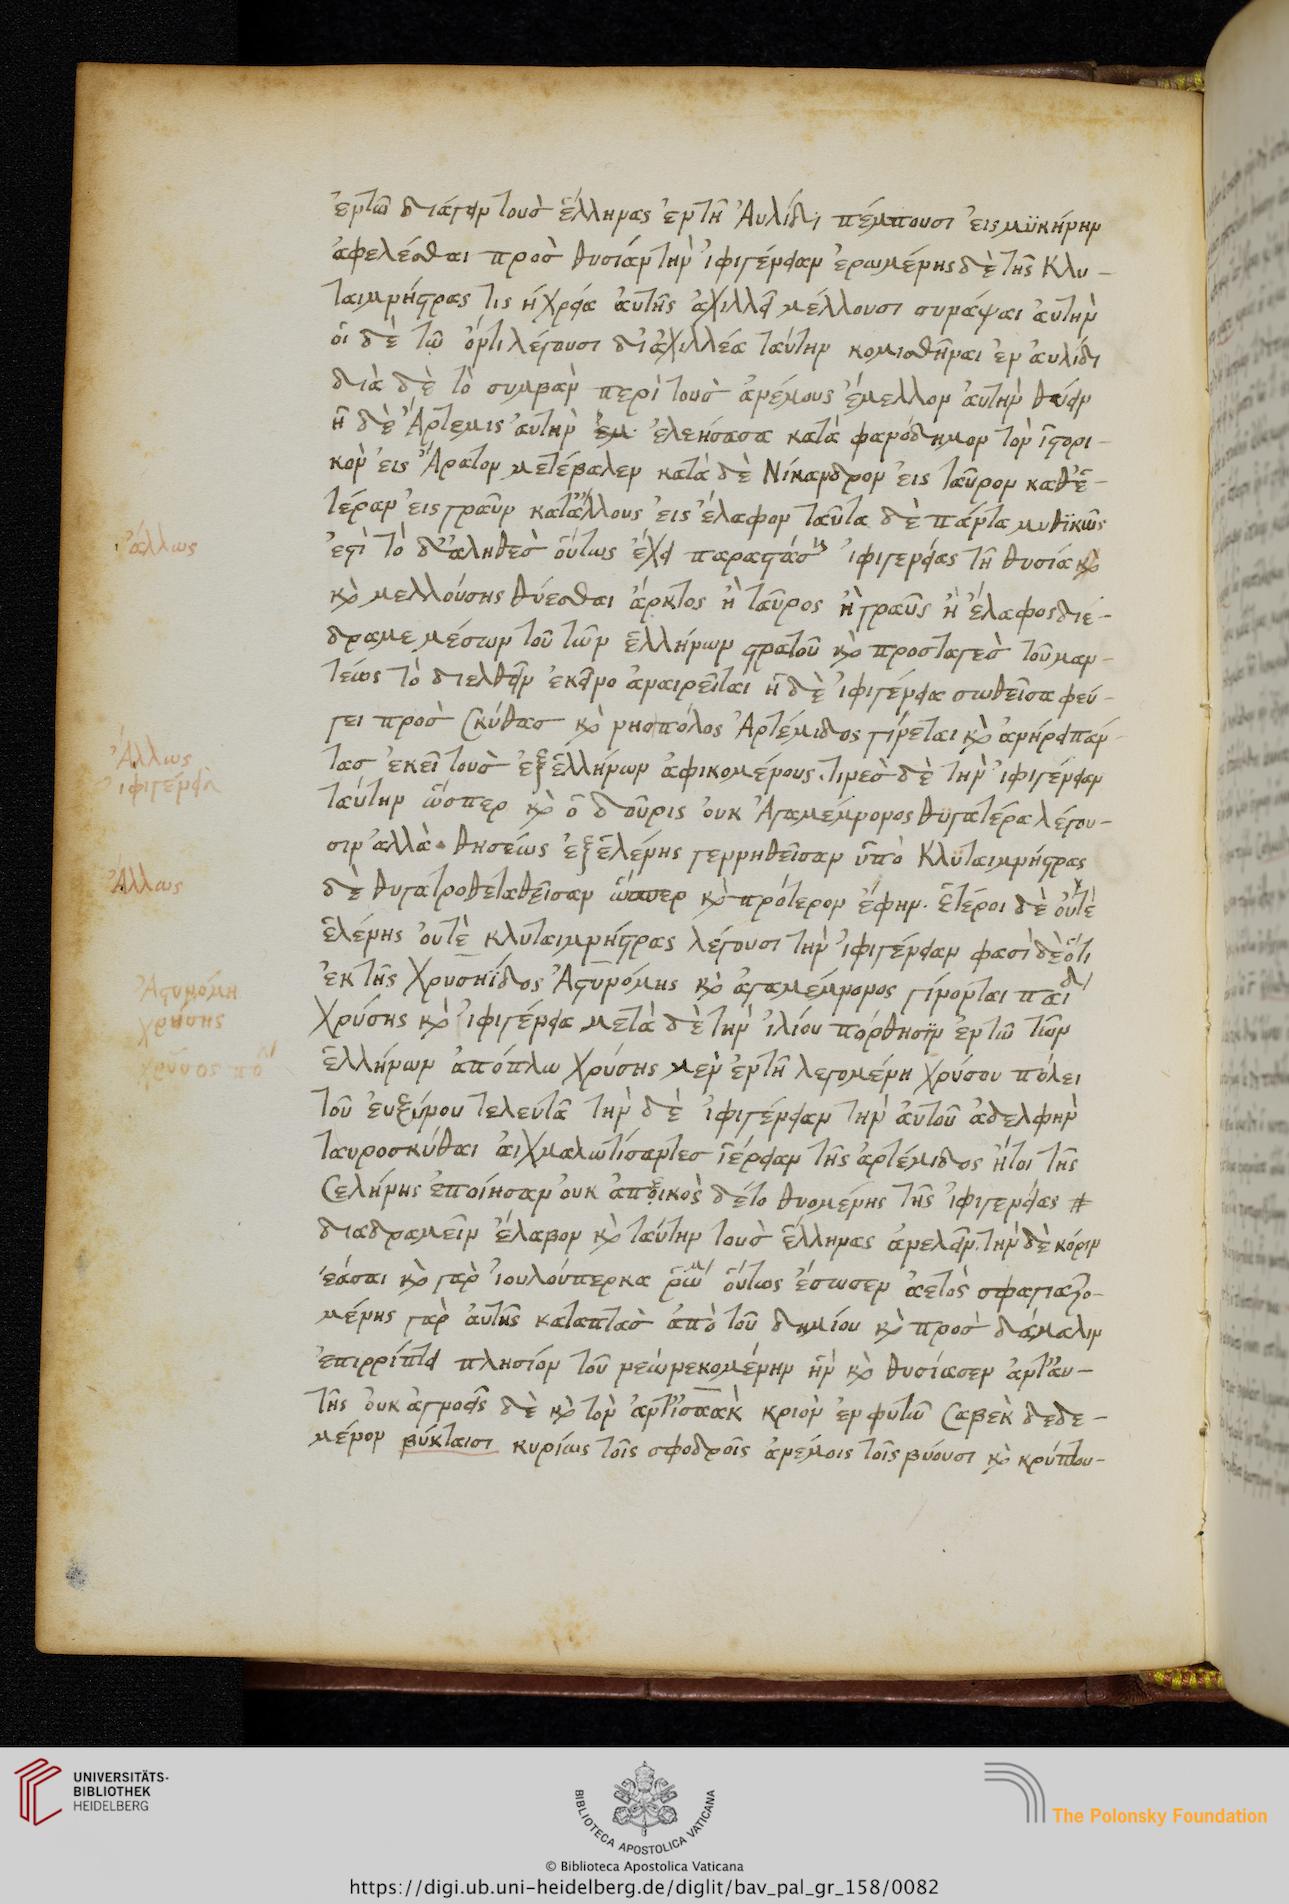 ἐν τῶ διάγειν τοὺς ἕλληνας ἐν τῆ Ἀυλίδι πέμπουσι εἰς μϋκήνην
ἀφελέσθαι πρὸς θυσίαν τὴν ἰφιγένειαν ἐρωμένης δὲ τῆς Κλυ-
ταιμνήστρας τίς ἡ χρεία ἀυτῆς ἀχιλλεῖ μέλλουσι συνάψαι ἀυτὴν
ὁι δὲ τῶ ὄντι λέγουσι δι ἀχιλλέα ταύτην κομισθῆναι ἐν ἀυλίδι
διὰ δὲ τὸ συμβὰν περὶ τοὺς ἀνέμους ἔμελλον ἀυτὴν θύειν
ἡ δὲ Ἄρτεμις ἀυτὴν ἐλεήσασα κατὰ φανόδημον τὸν ἱστορι-
κὸν εἰς Ἄρκτον μετέβαλεν κατὰ δὲ Νίκανδρον εἰς ταῦρον καθ ἑ-
τέραν εἰς γραῦν κατ ἄλλους εἰς ἔλαφον ταῦτα δὲ πάντα μυθϊκῶς
ἐστὶ τὸ δ' ἀληθὲς ὅυτως ἔχει παραστάσης ἰφιγενείας τῆ θυσία κὸ
κὸ μελλούσης θύεσθαι ἄρκτος ἢ ταῦρος ἢ γραῦς ἢ ἔλαφος διέ-
δραμε μέσων τοῦ τῶν ἑλλήνων στρατοῦ κὸ προσταγὲς τοῦ μαν-
τέως τὸ διελθεῖν ἐκεῖνο ἀναιρεῖται ἡ δὲ ἰφιγένεια σωθεῖσα φεύ-
γει πρὸς Σκύθας κὸ νηοπόλος Ἀρτέμιδος γίνεται κὸ ἀνήρει πάν
τας ἐκεῖ τοὺς ἐξ ἑλλήνων ἀφικομένους. τινὲς δὲ τὴν ἰφιγένειαν
ταύτην ὥσπερ κὸ ὁ δοῦρις ὀυκ Ἀγαμέμνονος θϋγατέρα λέγου-
σιν ἀλλὰ θησέως ἐξ ἑλένης γεννηθεῖσαν ὑπὸ Κλυταιμνήστρας
δὲ θυγατροθετηθεῖσαν ὥσπερ κὸ πρότερον ἔφην. ἕτεροι δὲ ὀύτὲ
ἑλένης ὀυτὲ κλυταιμνήστρας λέγουσι τὴν ἰφιγένειαν φασὶ δὲ ὅτι
ἐκ τῆς Χρυσηΐδος Ἀστυνόμης κὸ ἀγαμέμνονος γίνονται παιδ
Χρύσης κὸ ἰφιγένεια μετὰ δὲ τὴν ἰλίου πόρθησϊν ἐν τῶ τῶν
ἑλλήνων ἀπόπλω Χρύσης μὲν ἐν τῆ λεγομένη Χρύσου πόλει
τοῦ ἐυξίνου τελευτᾶ τὴν δὲ ἰφιγένειαν τὴν ἀυτοῦ ἀδελφὴν
ταυροσκύθαι ἀιχμαλωτίσαντες ἱέρειαν τῆς ἀρτέμιδος ἤτοι τῆς
Σελήνης ἐποίησαν ὀυκ ἀπεικὸς δέτο θυομένης τῆς ἰφιγενείας #
διαδραμεῖν ἔλαβον κὸ ταύτην τοὺς ἕλληνας ἀνελεῖν. τὴν δὲ κόριν
ἐάσαι κὸ γὰρ ἰουλούπερκα ῥωμ ὅυτως ἔσωσεν ἀετὸς σφαγιαζο-
μένης γὰρ ἀυτῆς καταπτὰς ἀπὸ τοῦ δημίου κὸ πρὸς δάμαλιν
ἐπιρρίπτει πλησίον τοῦ νεὼ νεκομένην ἣν κὸ θυσίασεν ἀντ' ἀυ-
τῆς ὀυκ ἀγνοεῖς δὲ κὸ τὸν ἀντ' ἰσαὰκ κριὸν ἐν φυτῶ Σαβὲκ δεδε-
μένον βύκταισι κυρίως τοῖς σφοδροῖς ἀνέμοις τοῖς βύουσι κὸ κρύπτου-
ἄλλως
Ἄλλως
ἰφιγένεια
Ἄλλως
Ἀστυνόμη
χρύσης
UNIVERSITÄTS-
BIBLIOTHEK
HEIDELBERG
BIBLIOTECA APOSTOLICA VATICANA
The Polonsky Foundation
© Biblioteca Apostolica Vaticana
https://digi.ub.uni-heidelberg.de/diglit/bav_pal_gr_158/0082